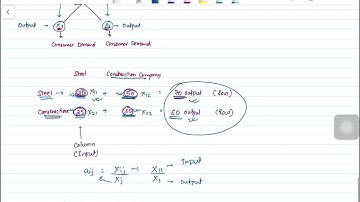 Output
Output
Consumer Demand Consumer Demand
Steel Construction Company
Steel → X11 + X12 = 70 output (Row)
Construction X21 + X22 = 60 output (Row)
Column
(Input)
aij = Xij / Xj → X11 / X1 → Input
Output